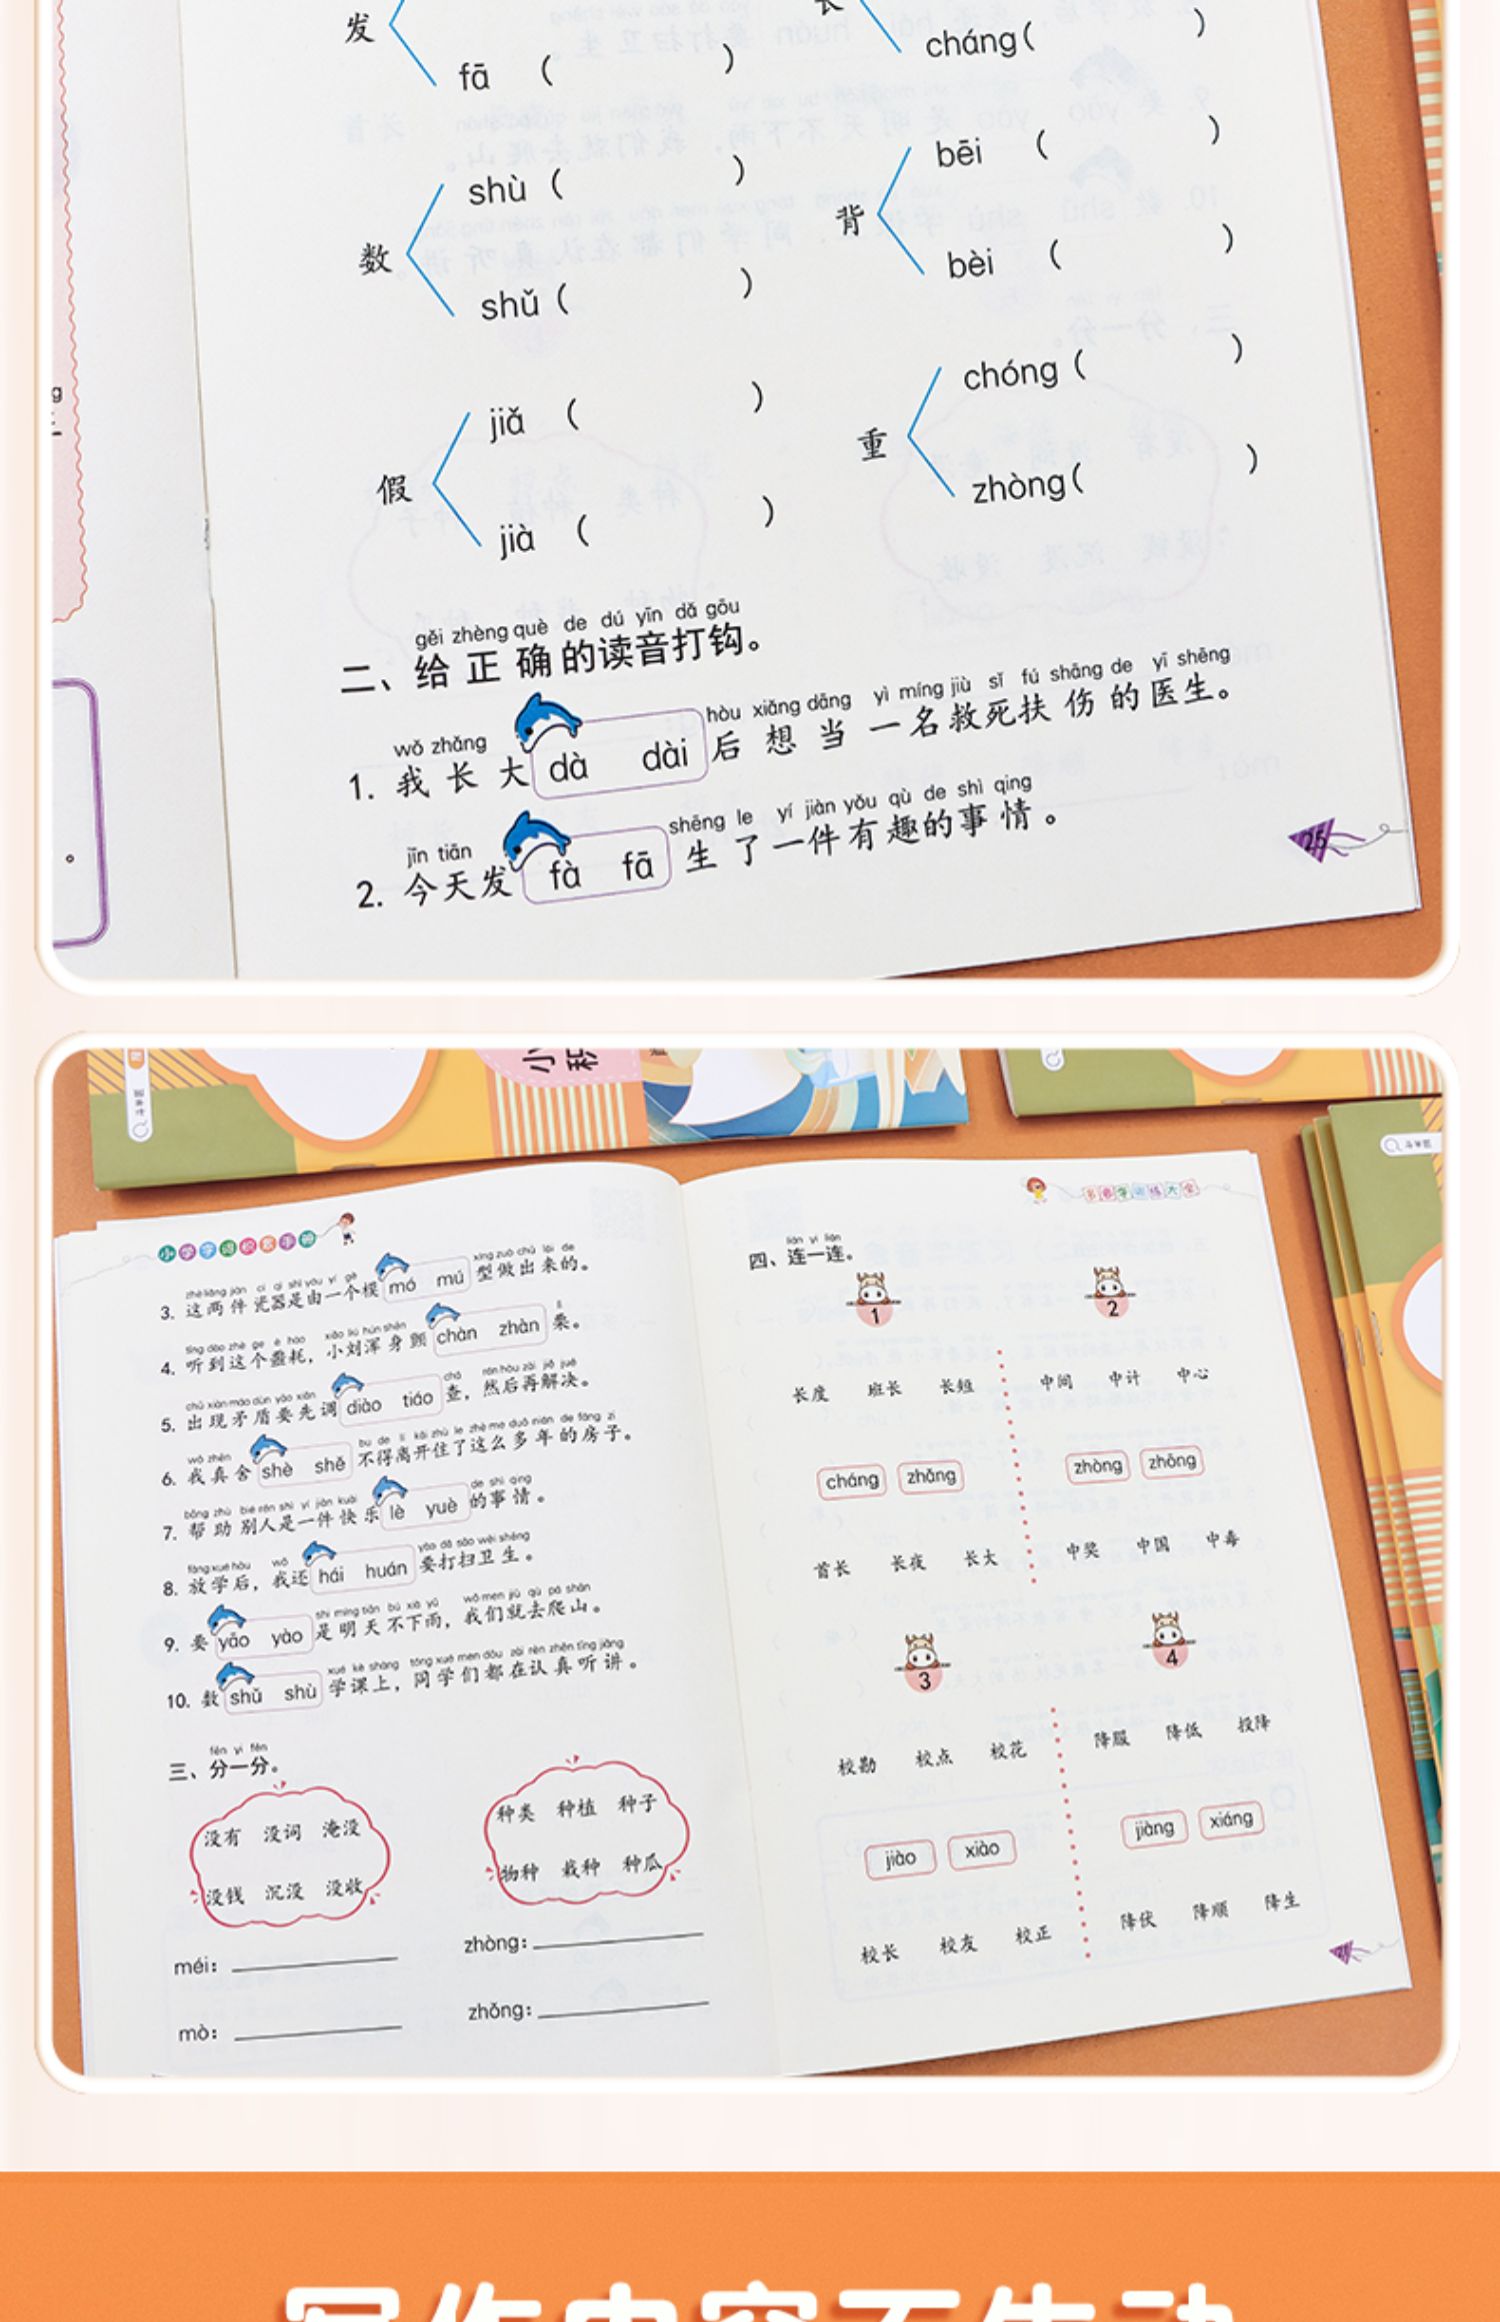 发
fā （ ）
cháng（ ）
数
shù （ ）
shǔ （ ）
背
bēi （ ）
bèi （ ）
假
jiǎ （ ）
jià （ ）
重
chóng（ ）
zhòng（ ）
gěi zhèng què de dú yīn dǎ gōu
二、给正确的读音打钩。
wǒ zhǎng hòu xiǎng dāng yì míng jiù sǐ fú shāng de yī shēng
1. 我长大 dà dài 后想当一名救死扶伤的医生。
jīn tiān shēng le yí jiàn yǒu qù de shì qing
2. 今天发 fà fā 生了一件有趣的事情。
25
小学字词积累手册
3. 这两件瓷器是由一个模 mó mú 型做出来的。
4. 听到这个噩耗，小刘浑身颤 chàn zhàn 栗。
5. 出现矛盾要先调 diào tiáo 查，然后再解决。
6. 我真舍 shè shě 不得离开住了这么多年的房子。
7. 帮助别人是一件快乐 lè yuè 的事情。
8. 放学后，我还 hái huán 要打扫卫生。
9. 要 yāo yào 是明天不下雨，我们就去爬山。
10. 数 shǔ shù 学课上，同学们都在认真听讲。
fēn yi fēn
三、分一分。
没有 没词 淹没
没钱 沉没 没收
种类 种植 种子
物种 栽种 种瓜
méi：
mò：
zhòng：
zhǒng：
多音字训练大全
lián yi lián
四、连一连。
1
长度 班长 长短
cháng zhǎng
首长 长夜 长大
2
中间 中计 中心
zhòng zhōng
中奖 中国 中毒
3
校勘 校点 校花
jiào xiào
校长 校友 校正
4
降服 降低 投降
jiàng xiáng
降伏 降顺 降生